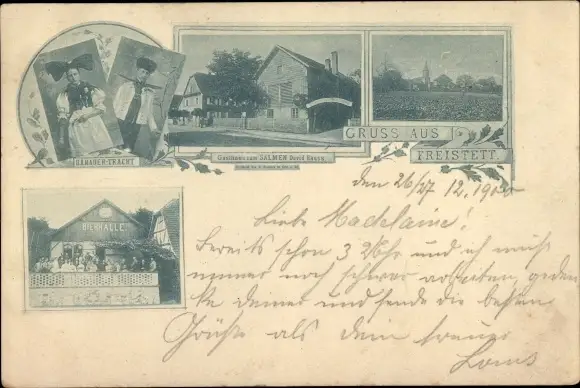 GRUSS AUS
FREISTETT.
HANAUER-TRACHT
Gasthaus zum SALMEN David
BIERHALLE.
den 26/27 12. 190
Liebe Madelaine!
Bereits schon 3 Uhr und ich muß
immer noch schwer arbeiten, geden
ke deiner und sende die besten
Grüße als dein treuer
Louis